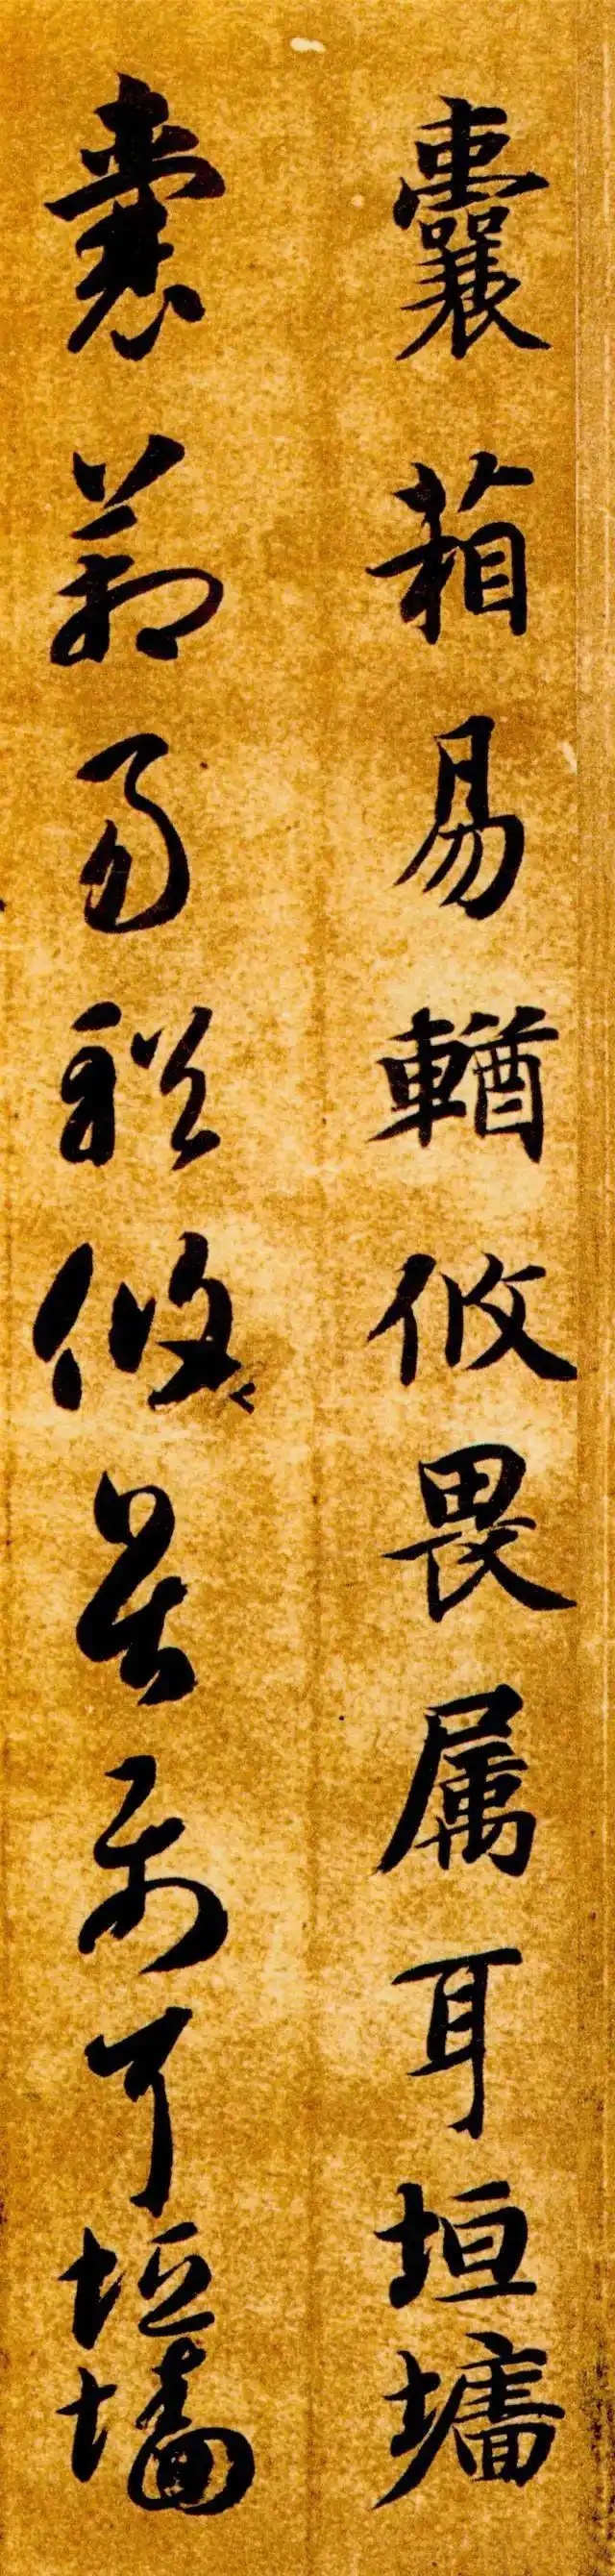 囊葙易輶攸畏属耳垣墻
囊葙易輶攸畏属耳垣墻